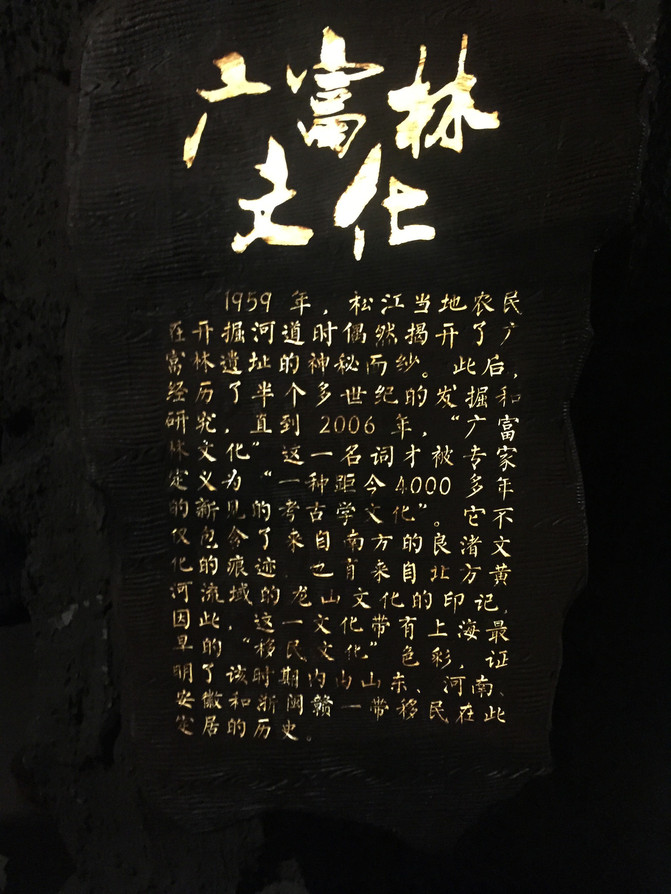 广富林
文化
1959 年，松江当地农民
在开掘河道时偶然揭开了广
富林遗址的神秘面纱。此后，
经历了半个多世纪的发掘和
研究，直到 2006 年，“广富
林文化”这一名词才被专家
定义为“一种距今4000多年
的新见的考古学文化”。它不
仅包含了来自南方的良渚文
化的痕迹，也有来自北方黄
河流域的龙山文化的印记，
因此，这一文化带有上海最
早的“移民文化”色彩，证
明了该时期内由山东、河南、
安徽和浙闽赣一带移民在此
定居的历史。